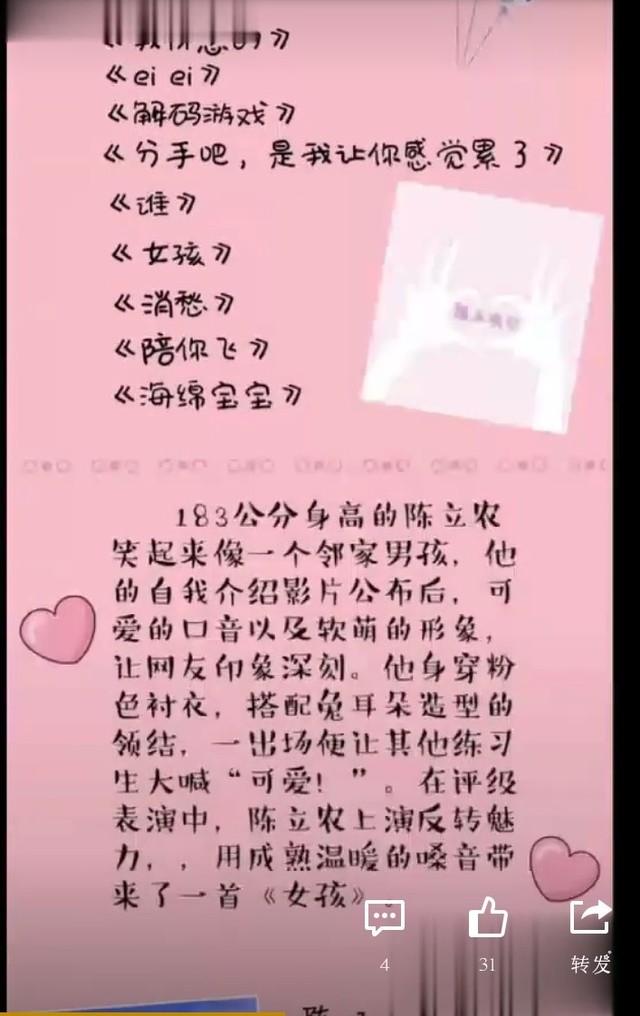 《ei ei》
《解码游戏》
《分手吧，是我让你感觉累了》
《谁》
《女孩》
《消愁》
《陪你飞》
《海绵宝宝》
183公分身高的陈立农
笑起来像一个邻家男孩，他
的自我介绍影片公布后，可
爱的口音以及软萌的形象，
让网友印象深刻。他身穿粉
色衬衣，搭配兔耳朵造型的
领结，一出场便让其他练习
生大喊“可爱！”。在评级
表演中，陈立农上演反转魅
力，，用成熟温暖的嗓音带
来了一首《女孩》。
4
31
转发